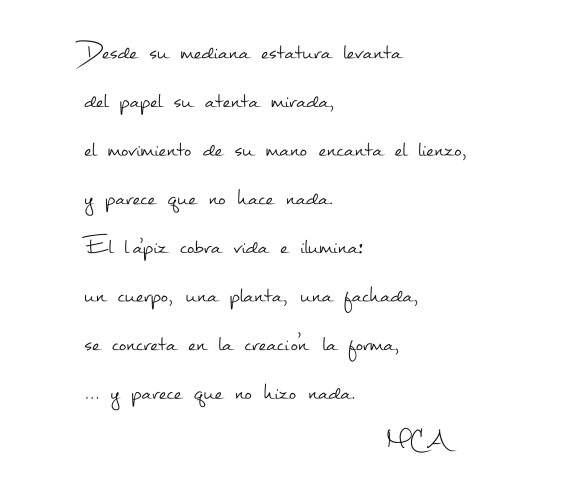 Desde su mediana estatura levanta
del papel su atenta mirada,
el movimiento de su mano encanta el lienzo,
y parece que no hace nada.
El lápiz cobra vida e ilumina:
un cuerpo, una planta, una fachada,
se concreta en la creación la forma,
... y parece que no hizo nada.
MCA